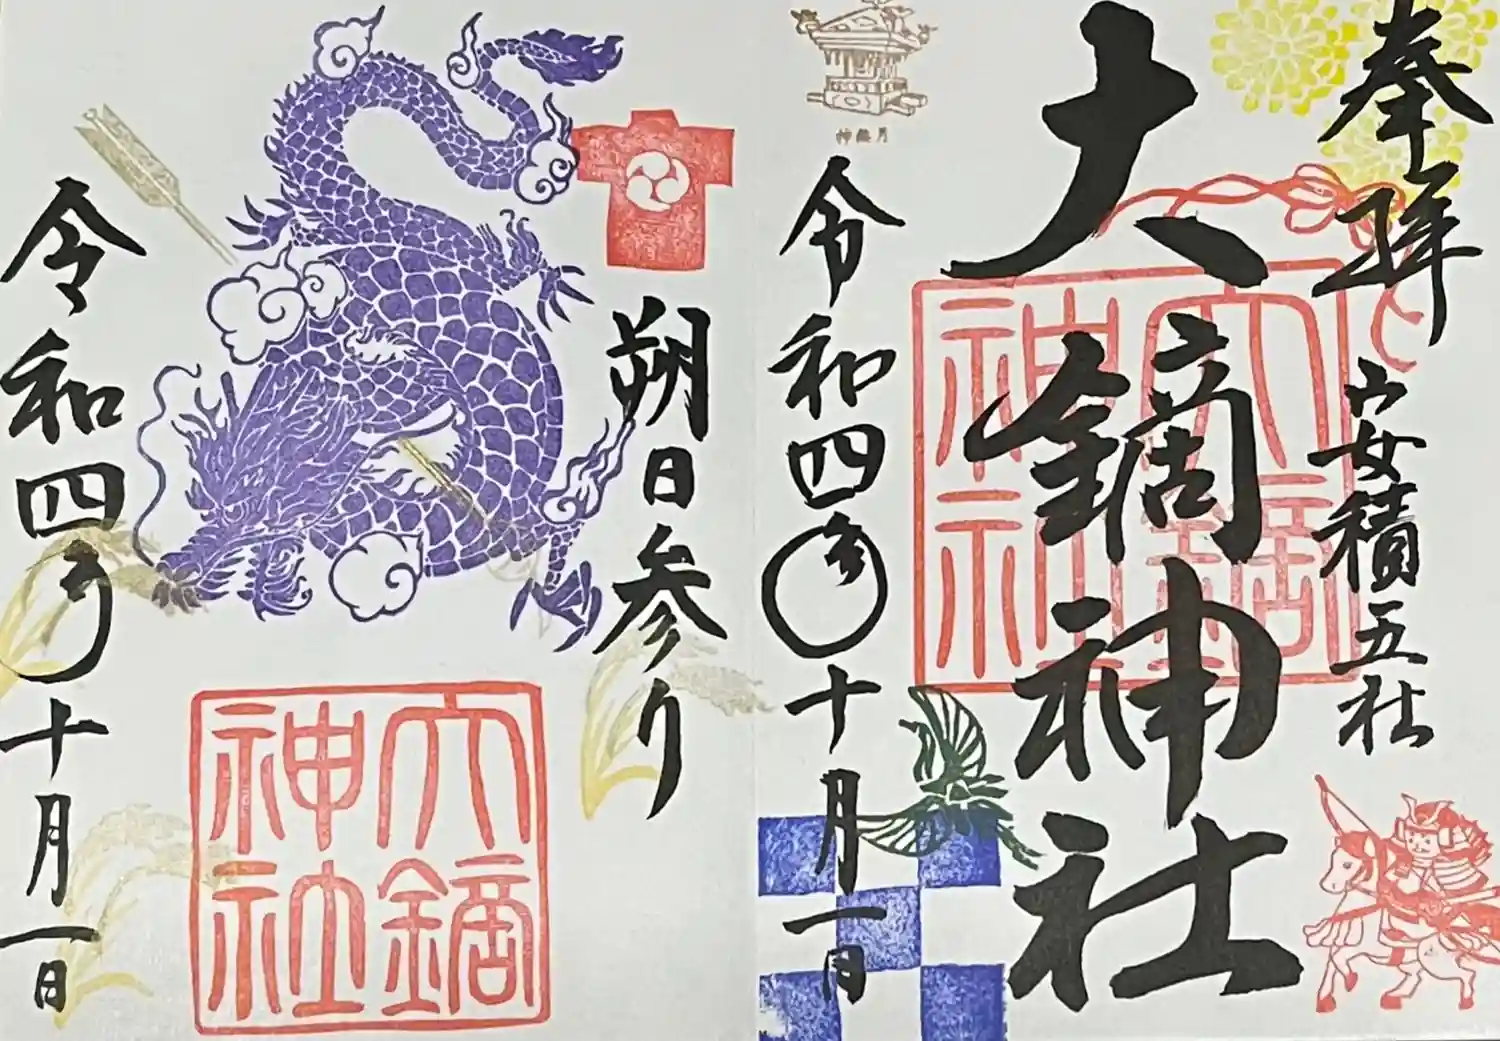 奉拝
安積五社
大鏑神社
大鏑神社
神無月
令和四年十月一日
朔日参り
大鏑神社
令和四年十月一日